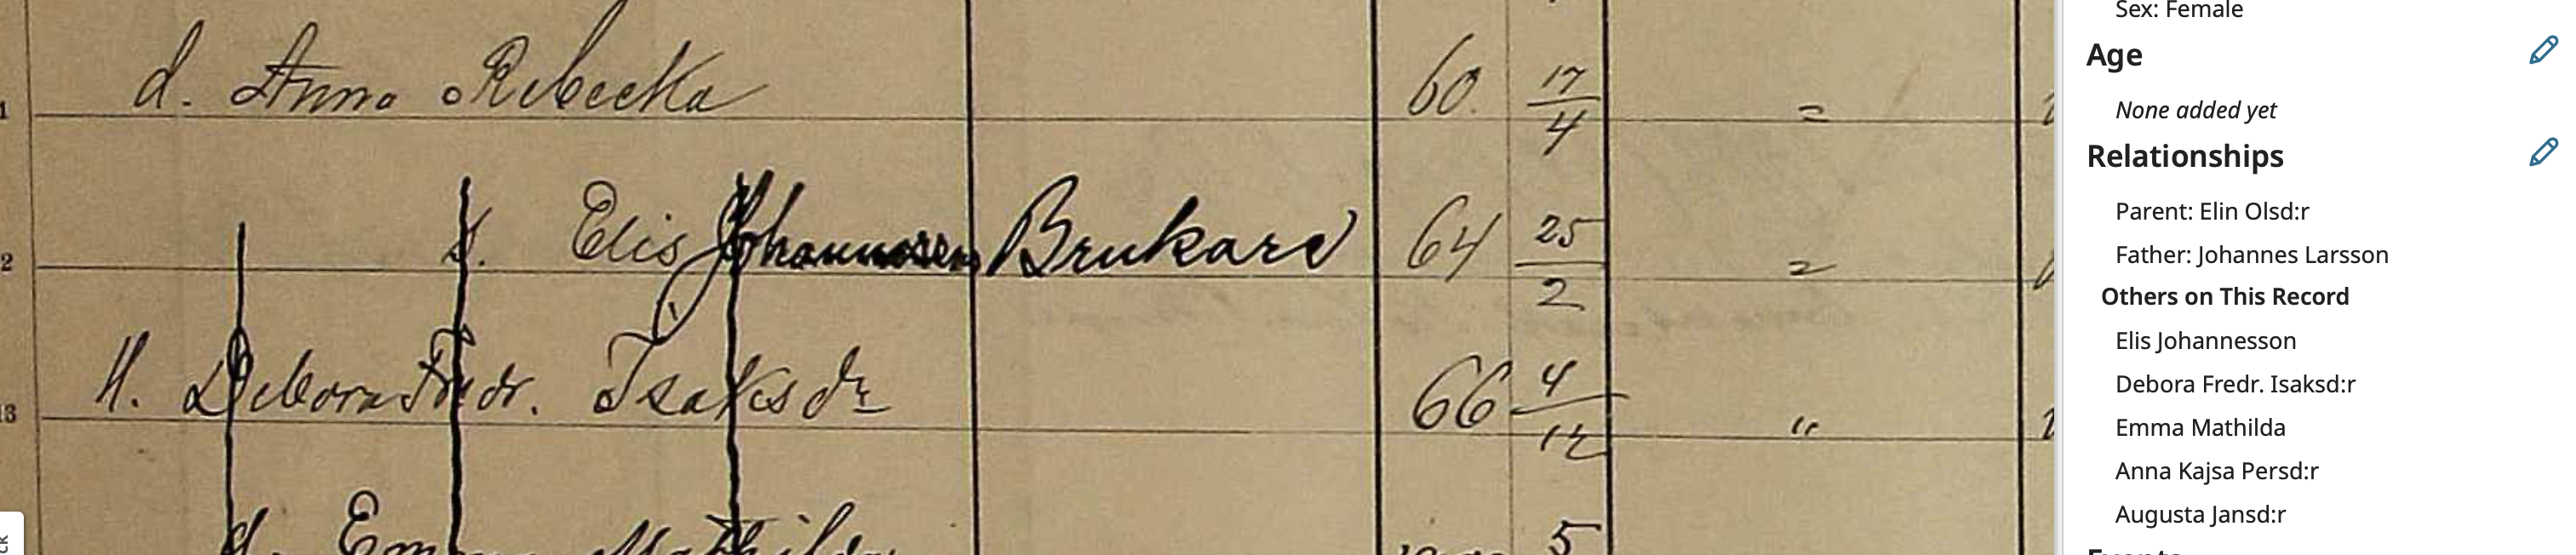 d. Anna Rebecka 60. 17/4 =
2 s. Elis Johannesson Brukare 64 25/2 =
13 H. Debora Fredr. Isaksdr 66 4/12 "
d. Emma Mathilda 5
Sex: Female
Age
None added yet
Relationships
Parent: Elin Olsd:r
Father: Johannes Larsson
Others on This Record
Elis Johannesson
Debora Fredr. Isaksd:r
Emma Mathilda
Anna Kajsa Persd:r
Augusta Jansd:r
Events